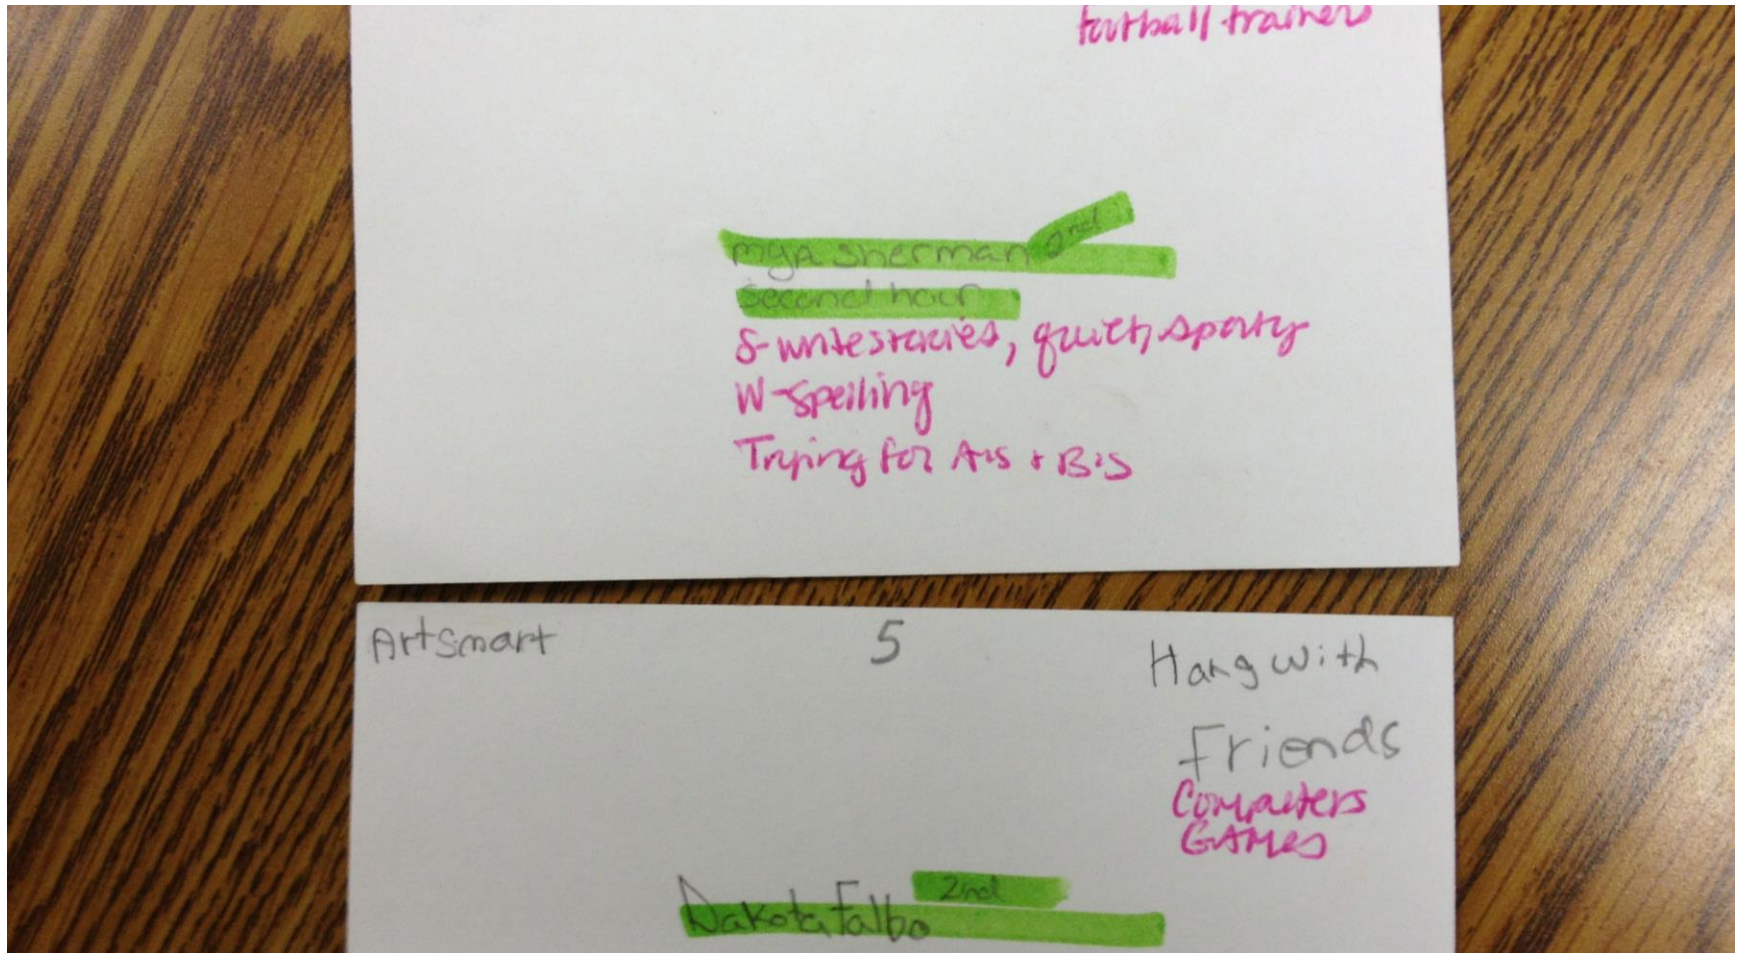 football trainers
mya sherman 2nd
second hour
S-write stories, quiet, sporty
W-spelling
Trying for A's + B's
Art Smart 5 Hang with
Friends
Computers
GAMES
2nd
Dakota Falbo